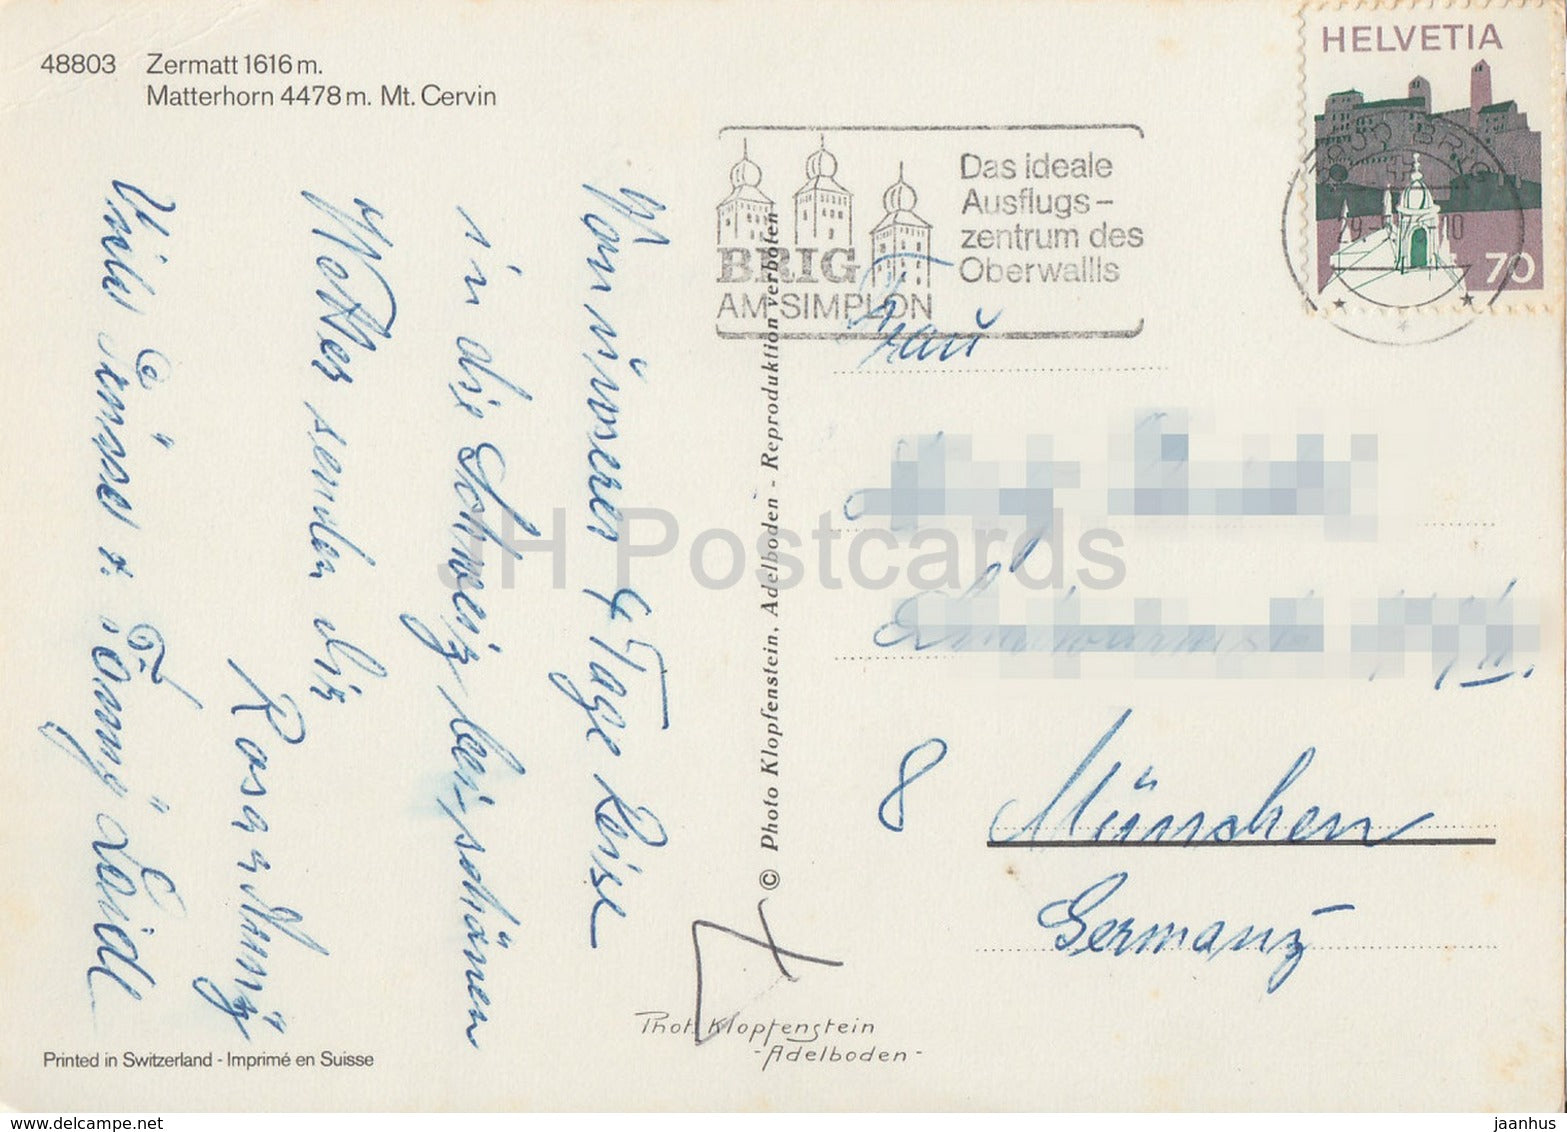 48803 Zermatt 1616 m.
Matterhorn 4478 m. Mt. Cervin
HELVETIA
70
BRIG
AM SIMPLON
Das ideale
Ausflugs-
zentrum des
Oberwallis
Von unserer 4 Tage Reise
in die Schweiz bei schönen
Wetter senden Dir
Viele Grüsse
Rosa
Fanny
Frau
8 München
Germany
© Photo Klopfenstein, Adelboden - Reproduktion verboten
Phot. Klopfenstein
-Adelboden-
Printed in Switzerland - Imprimé en Suisse
JH Postcards
www.delcampe.net
jaanhus